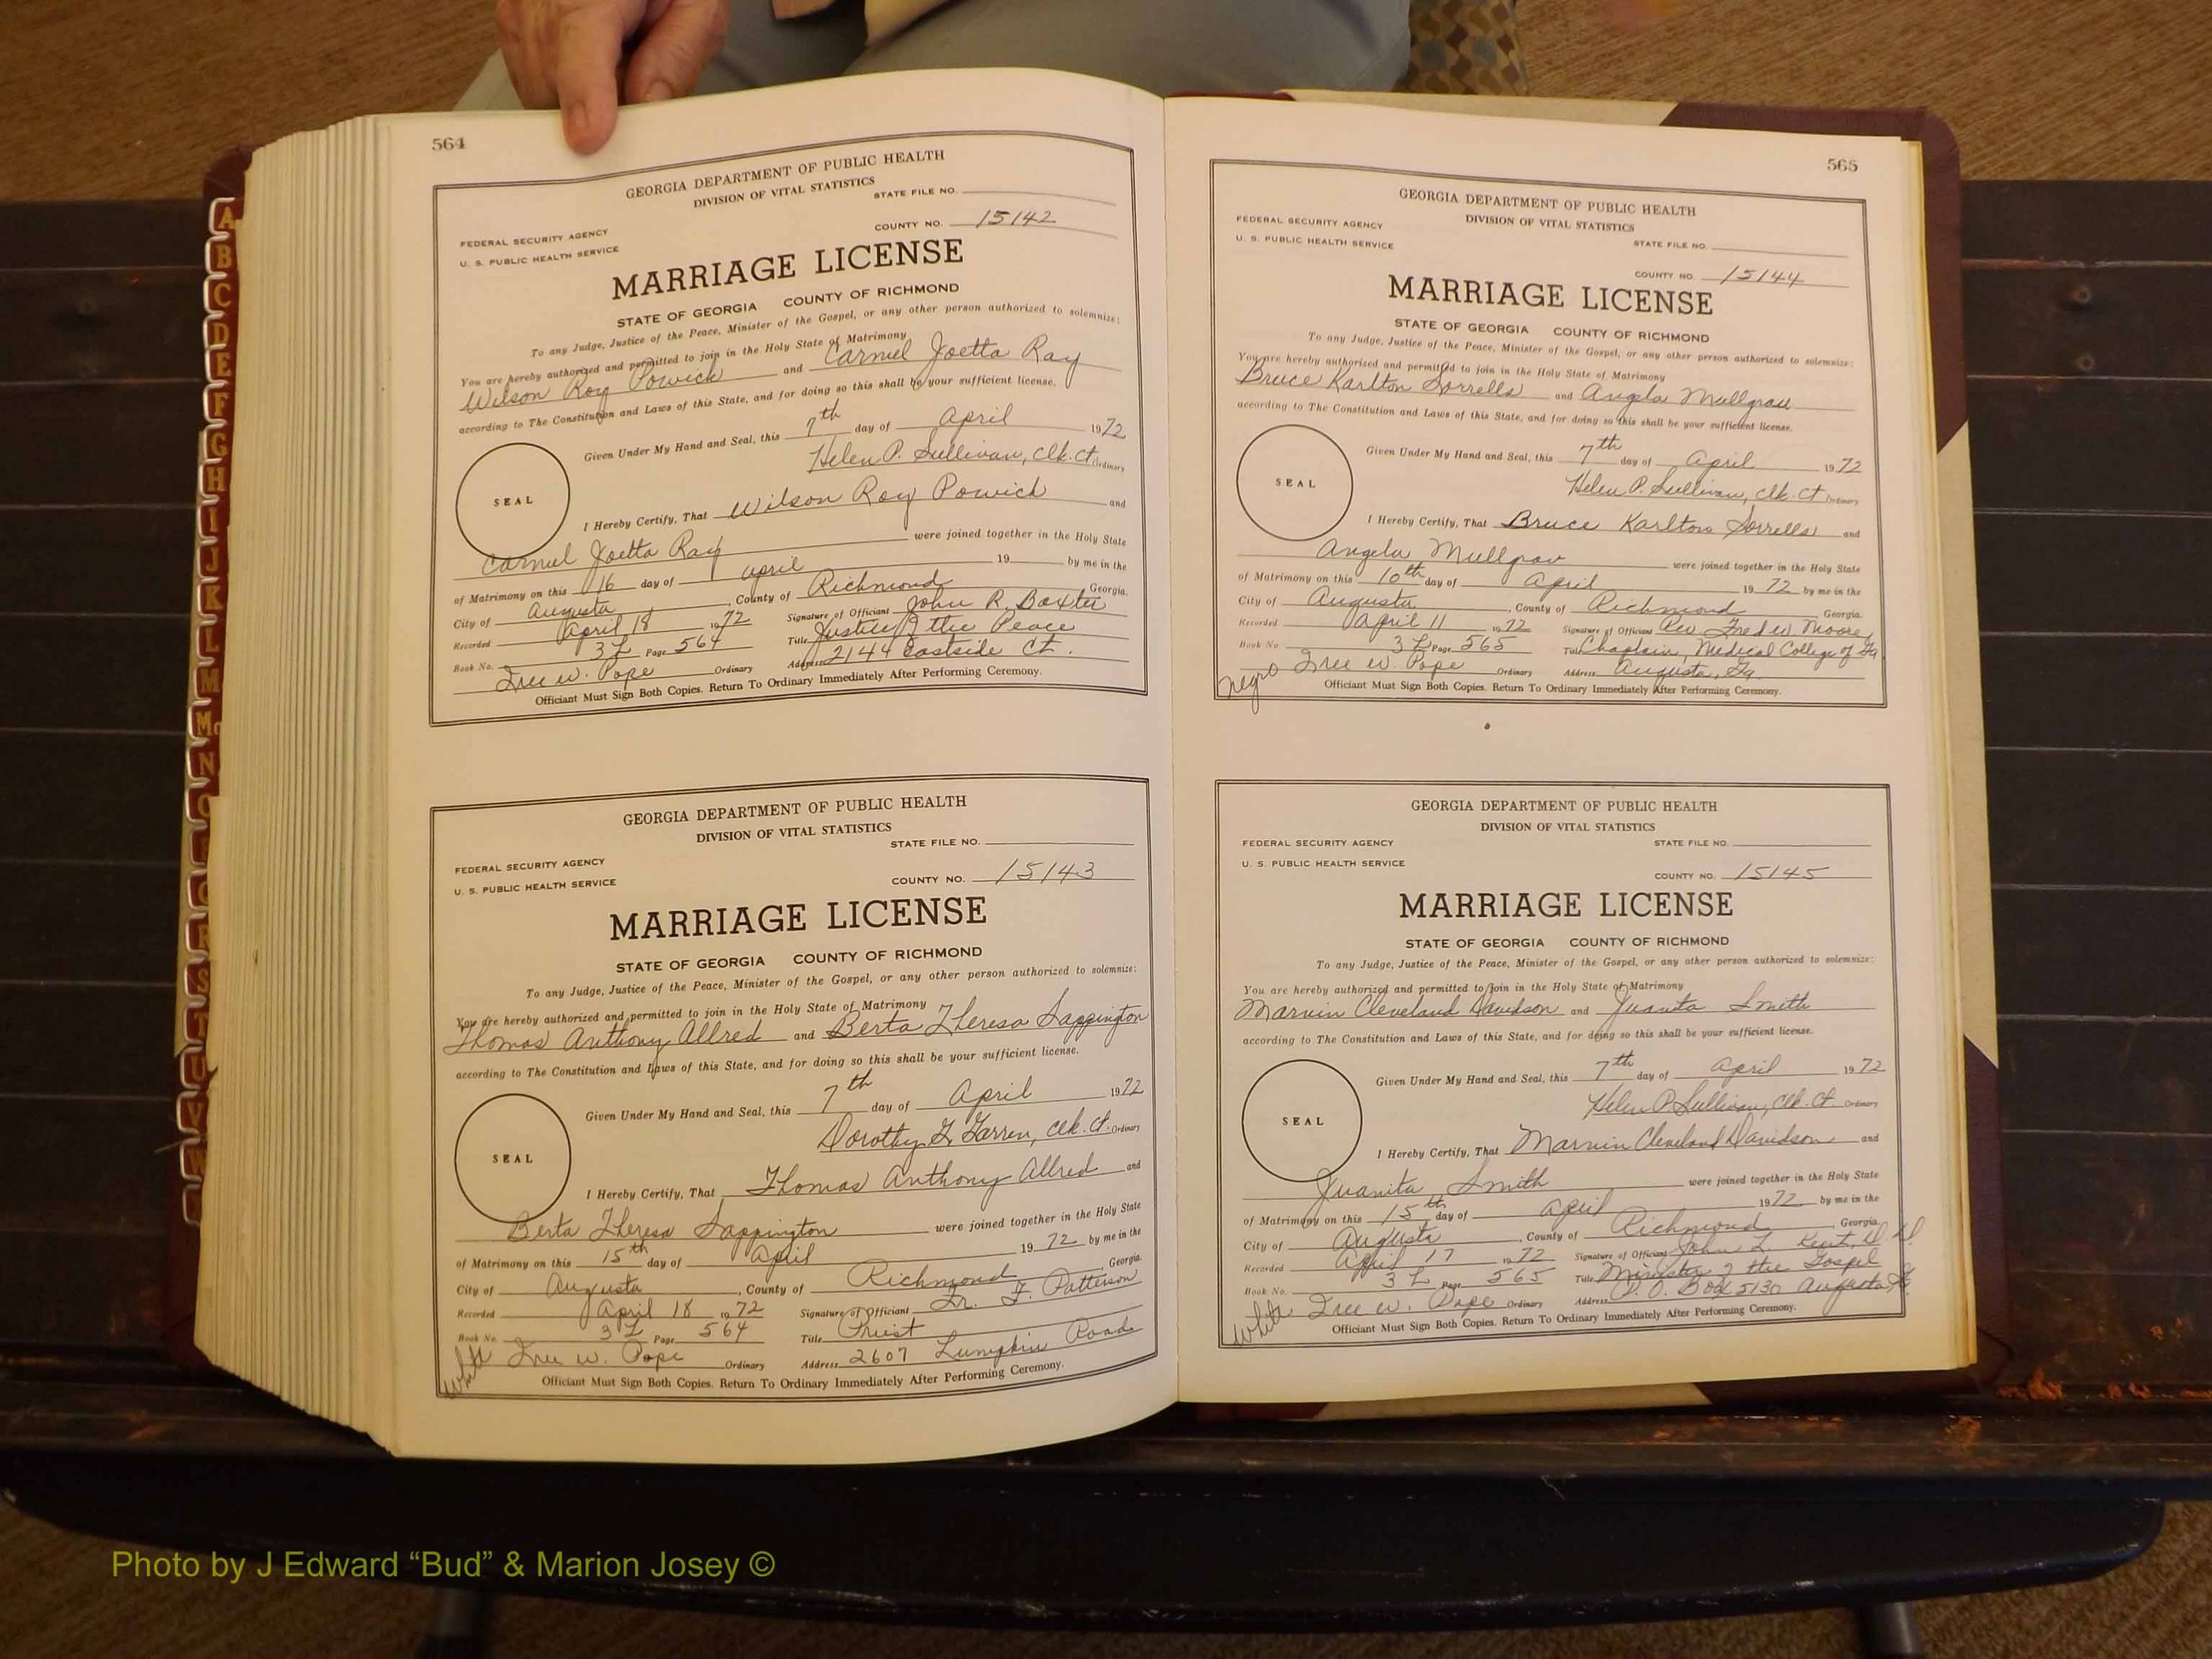 564
GEORGIA DEPARTMENT OF PUBLIC HEALTH
DIVISION OF VITAL STATISTICS
STATE FILE NO.
COUNTY NO. 15142
FEDERAL SECURITY AGENCY
U. S. PUBLIC HEALTH SERVICE
MARRIAGE LICENSE
STATE OF GEORGIA COUNTY OF RICHMOND
To any Judge, Justice of the Peace, Minister of the Gospel, or any other person authorized to solemnize:
You are hereby authorized and permitted to join in the Holy State of Matrimony
Wilson Roy Powick and Carmel Joetta Ray
according to The Constitution and Laws of this State, and for doing so this shall be your sufficient license.
Given Under My Hand and Seal, this 7th day of April 1972
Helen P. Sullivan, Clk. Ct. Ordinary
SEAL
I Hereby Certify, That Wilson Roy Powick and
Carmel Joetta Ray were joined together in the Holy State
of Matrimony on this 16 day of April 19 by me in the
City of Augusta, County of Richmond Georgia.
Recorded April 18 1972 Signature of Officiant John R. Baxter
Book No. 3L Page 564 Title Justice of the Peace
Tree W. Pope Ordinary Address 2144 Eastside Ct.
Officiant Must Sign Both Copies. Return To Ordinary Immediately After Performing Ceremony.
GEORGIA DEPARTMENT OF PUBLIC HEALTH
DIVISION OF VITAL STATISTICS
STATE FILE NO.
FEDERAL SECURITY AGENCY
U. S. PUBLIC HEALTH SERVICE
COUNTY NO. 15143
MARRIAGE LICENSE
STATE OF GEORGIA COUNTY OF RICHMOND
To any Judge, Justice of the Peace, Minister of the Gospel, or any other person authorized to solemnize:
You are hereby authorized and permitted to join in the Holy State of Matrimony
Thomas Anthony Allred and Berta Theresa Sappington
according to The Constitution and Laws of this State, and for doing so this shall be your sufficient license.
Given Under My Hand and Seal, this 7th day of April 1972
Dorothy Clk. Ct. Ordinary
SEAL
I Hereby Certify, That Thomas Anthony Allred and
Berta Theresa Sappington were joined together in the Holy State
of Matrimony on this 15th day of April 19 72 by me in the
City of Augusta, County of Richmond, Georgia.
Recorded April 18 1972 Signature of Officiant Fr. F. Patterson
Book No. 3L Page 564 Title Priest
White Tree W. Pope Ordinary Address 2607 Lumpkin Road
Officiant Must Sign Both Copies. Return To Ordinary Immediately After Performing Ceremony.
565
GEORGIA DEPARTMENT OF PUBLIC HEALTH
DIVISION OF VITAL STATISTICS
FEDERAL SECURITY AGENCY
U. S. PUBLIC HEALTH SERVICE
STATE FILE NO.
COUNTY NO. 15144
MARRIAGE LICENSE
STATE OF GEORGIA COUNTY OF RICHMOND
To any Judge, Justice of the Peace, Minister of the Gospel, or any other person authorized to solemnize:
You are hereby authorized and permitted to join in the Holy State of Matrimony
Bruce Karlton Sorrells and Angela Mullgrav
according to The Constitution and Laws of this State, and for doing so this shall be your sufficient license.
Given Under My Hand and Seal, this 7th day of April 1972
Helen P. Sullivan, Clk. Ct Ordinary
SEAL
I Hereby Certify, That Bruce Karlton Sorrells and
Angela Mullgrav were joined together in the Holy State
of Matrimony on this 10th day of April 19 72 by me in the
City of Augusta, County of Richmond Georgia.
Recorded April 11 1972 Signature of Officiant Rev Fred W. Moore
Book No. 3L Page 565 Title Chaplain, Medical College of Ga.
Negro Tree W. Pope Ordinary Address Augusta, Ga.
Officiant Must Sign Both Copies. Return To Ordinary Immediately After Performing Ceremony.
GEORGIA DEPARTMENT OF PUBLIC HEALTH
DIVISION OF VITAL STATISTICS
FEDERAL SECURITY AGENCY
U. S. PUBLIC HEALTH SERVICE
STATE FILE NO.
COUNTY NO. 15145
MARRIAGE LICENSE
STATE OF GEORGIA COUNTY OF RICHMOND
To any Judge, Justice of the Peace, Minister of the Gospel, or any other person authorized to solemnize:
You are hereby authorized and permitted to join in the Holy State of Matrimony
Marvin Cleveland Davidson and Juanita Smith
according to The Constitution and Laws of this State, and for doing so this shall be your sufficient license.
Given Under My Hand and Seal, this 7th day of April 1972
Helen P. Sullivan, Clk. Ct. Ordinary
SEAL
I Hereby Certify, That Marvin Cleveland Davidson and
Juanita Smith were joined together in the Holy State
of Matrimony on this 15th day of April 1972 by me in the
City of Augusta, County of Richmond, Georgia.
Recorded April 17 1972 Signature of Officiant John L. Kent, D.D.
Book No. 3L Page 565 Title Minister of the Gospel
White Tree W. Pope Ordinary Address P. O. Box 5130 Augusta Ga.
Officiant Must Sign Both Copies. Return To Ordinary Immediately After Performing Ceremony.
A
B
C
D
E
F
G
H
I
J
K
L
M
Mc
N
O
P
Q
R
S
T
U
V
W
Photo by J Edward “Bud” & Marion Josey ©